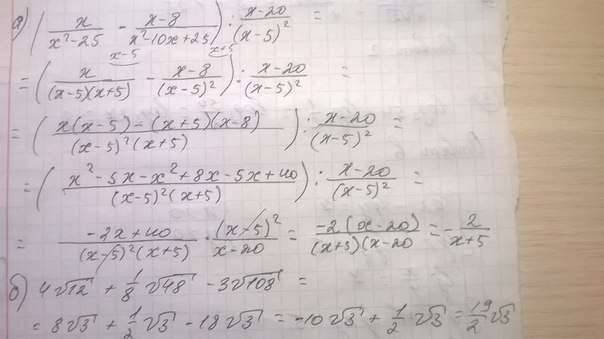 а) (x/(x²-25) - (x-8)/(x²-10x+25)) : (x-20)/(x-5)² =
x-5 x+5
= (x/((x-5)(x+5)) - (x-8)/(x-5)²) : (x-20)/(x-5)² =
= ((x(x-5) - (x+5)(x-8))/((x-5)²(x+5))) : (x-20)/(x-5)² =
= ((x²-5x-x²+8x-5x+40)/((x-5)²(x+5))) : (x-20)/(x-5)² =
= (-2x+40)/((x-5)²(x+5)) · (x-5)²/(x-20) = (-2(x-20))/((x+5)(x-20) = -2/(x+5)
б) 4√12 + 1/8 √48 - 3√108 =
= 8√3 + 1/2 √3 - 18√3 = -10√3 + 1/2 √3 = 19/2 √3